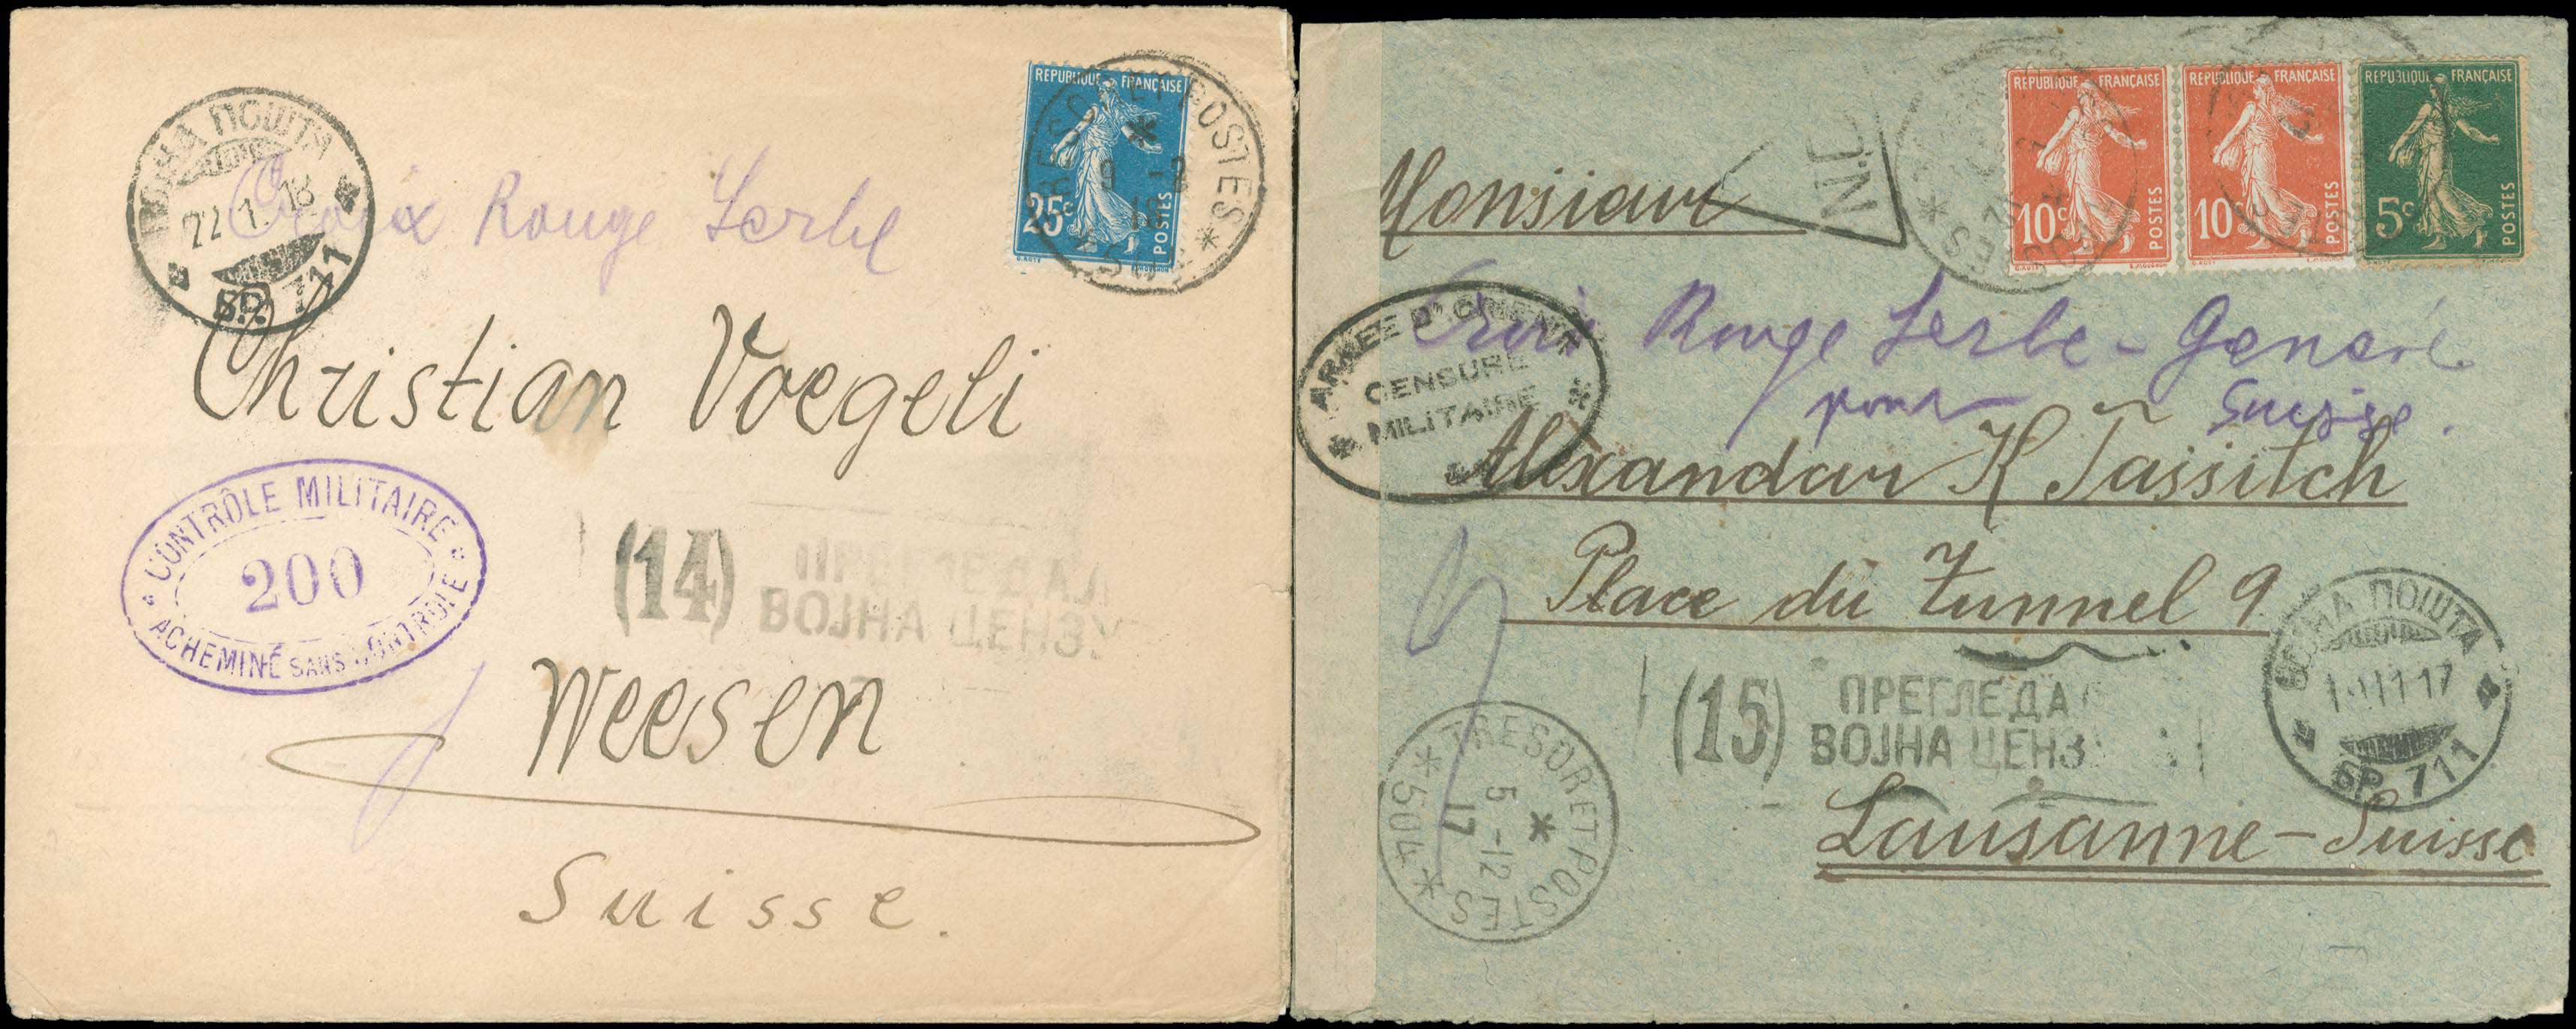 ВОЈНА ПОШТА
22.1.18
БР. 711
Croix Rouge Serbe
REPUBLIQUE FRANÇAISE
25c
POSTES
ET POSTES
9 -2
18
Christian Voegeli
CONTRÔLE MILITAIRE
200
ACHEMINÉ SANS CONTROLE
(14)
ПРЕГЛЕДАЛ
ВОЈНА ЦЕНЗУ
Weesen
Suisse.
REPUBLIQUE FRANÇAISE
10c
POSTES
REPUBLIQUE FRANÇAISE
10c
POSTES
REPUBLIQUE FRANÇAISE
5c
POSTES
Monsieur
Croix Rouge Serbe - Genève
pour Suisse.
ARMEE D'ORIENT
CENSURE
MILITAIRE
Alexandar K Tassitch
Place du Tunnel 9
(15)
ПРЕГЛЕДА
ВОЈНА ЦЕНЗ
ВОЈНА ПОШТА
11 17
БР. 711
TRESOR ET POSTES
5 -12
17
* 504 *
Lausanne - Suisse